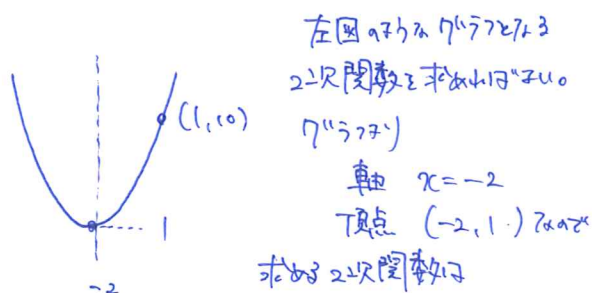 左図のようなグラフとなる
2次関数を求めればよい。
(1,10)
グラフより
軸 x=-2
1
頂点 (-2,1) なので
求める2次関数は
-2